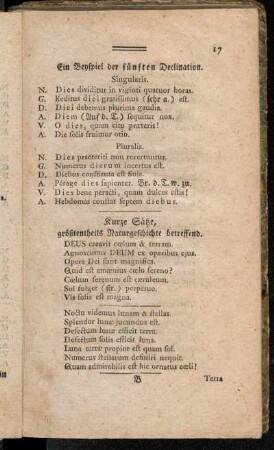 17
Ein Beyspiel der fünften Declination.
Singularis.
N. Dies dividitur in viginti quatuor horas.
G. Reditus diei gratissimus (sehr a.) est.
D. Diei debemus plurima gaudia.
A. Diem (Auf d. T.) sequitur nox.
V. O dies, quam cito præteris!
A. Die solis fruimur otio.
Pluralis.
N. Dies præteriti non revertuntur.
G. Numerus dierum incertus est.
D. Diebus constitutus est finis.
A. Perage dies sapienter. Br. d. T. w. zu.
V. Dies bene peracti, quam dulces estis!
A. Hebdomas constat septem diebus.
Kurze Sätze,
größtentheils Naturgeschichte betreffend.
DEUS creavit cœlum & terram.
Agnoscimus DEUM ex operibus ejus.
Opera Dei sunt magnifica.
Quid est amœnius cœlo sereno?
Cœlum serenum est cæruleum.
Sol fulget (str.) perpetuo.
Vis solis est magna.
Noctu videmus lunam & stellas.
Splendor lunæ jucundus est.
Defectum lunæ efficit terra.
Defectum solis efficit luna.
Luna terræ propior est quam sol.
Numerus stellarum definiri nequit.
Quam admirabilis est hic ornatus cœli!
B Terra